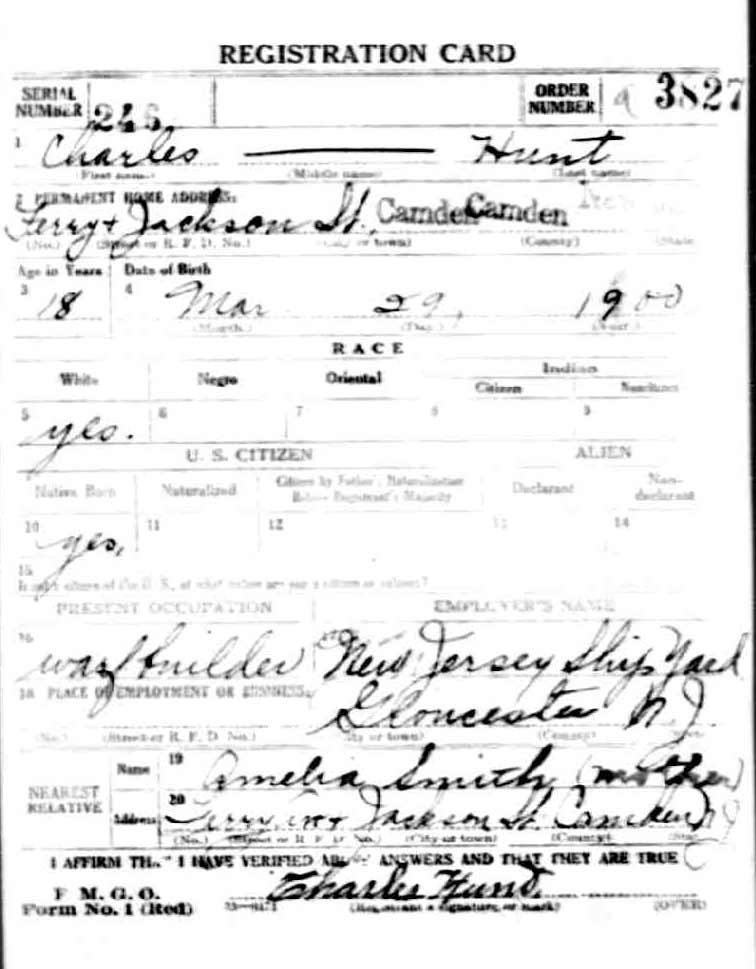 REGISTRATION CARD
SERIAL NUMBER 246 ORDER NUMBER a 3827
1 Charles — Hunt
(First name) (Middle name) (Last name)
2 PERMANENT HOME ADDRESS:
Ferry + Jackson St. Camden Camden
(No.) (Street or R. F. D. No.) (City or town) (County) (State)
Age in Years Date of Birth
3 18 4 Mar 29, 1900
(Month.) (Day.) (Year.)
RACE
White Negro Oriental Indian
Citizen Noncitizen
5 yes. 6 7 8 9
U. S. CITIZEN ALIEN
Native Born Naturalized Citizen by Father's Naturalization Before Registrant's Majority Declarant Non-declarant
10 yes, 11 12 13 14
15
If not a citizen of the U. S., of what nation are you a citizen or subject?
PRESENT OCCUPATION EMPLOYER'S NAME
16 warf builder New Jersey Ship Yard
18 PLACE OF EMPLOYMENT OR BUSINESS:
Gloucester N J
(No.) (Street or R. F. D. No.) (City or town) (County) (State)
NEAREST RELATIVE Name 19 Amelia Smith (mother)
Address 20 Ferry Ave + Jackson St Camden N J
(No.) (Street or R. F. D. No.) (City or town) (County) (State)
I AFFIRM THAT I HAVE VERIFIED ABOVE ANSWERS AND THAT THEY ARE TRUE
P. M. G. O.
Form No. 1 (Red) Charles Hunt.
(Registrant's signature or mark) (OVER)